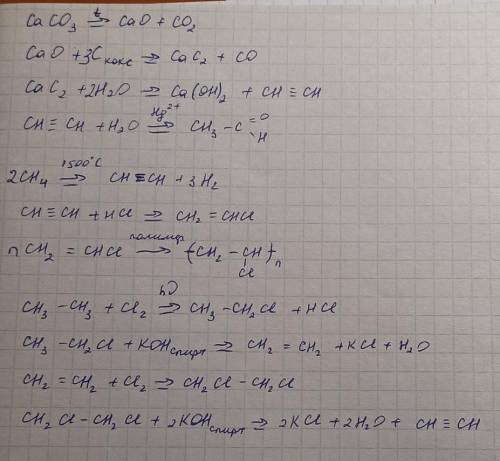 CaCO₃ =(t)=> CaO + CO₂
CaO + 3C кокс => CaC₂ + CO
CaC₂ + 2H₂O => Ca(OH)₂ + CH ≡ CH
CH ≡ CH + H₂O =(Hg²⁺)=> CH₃ – C =O \H
2CH₄ =(1500°C)=> CH ≡ CH + 3H₂
CH ≡ CH + HCl => CH₂ = CHCl
n CH₂ = CHCl —(полимер)→ (CH₂ – CH)n | Cl
CH₃ – CH₃ + Cl₂ =(hν)=> CH₃ – CH₂Cl + HCl
CH₃ – CH₂Cl + KOH спирт => CH₂ = CH₂ + KCl + H₂O
CH₂ = CH₂ + Cl₂ => CH₂Cl – CH₂Cl
CH₂Cl – CH₂Cl + 2KOH спирт => 2KCl + 2H₂O + CH ≡ CH